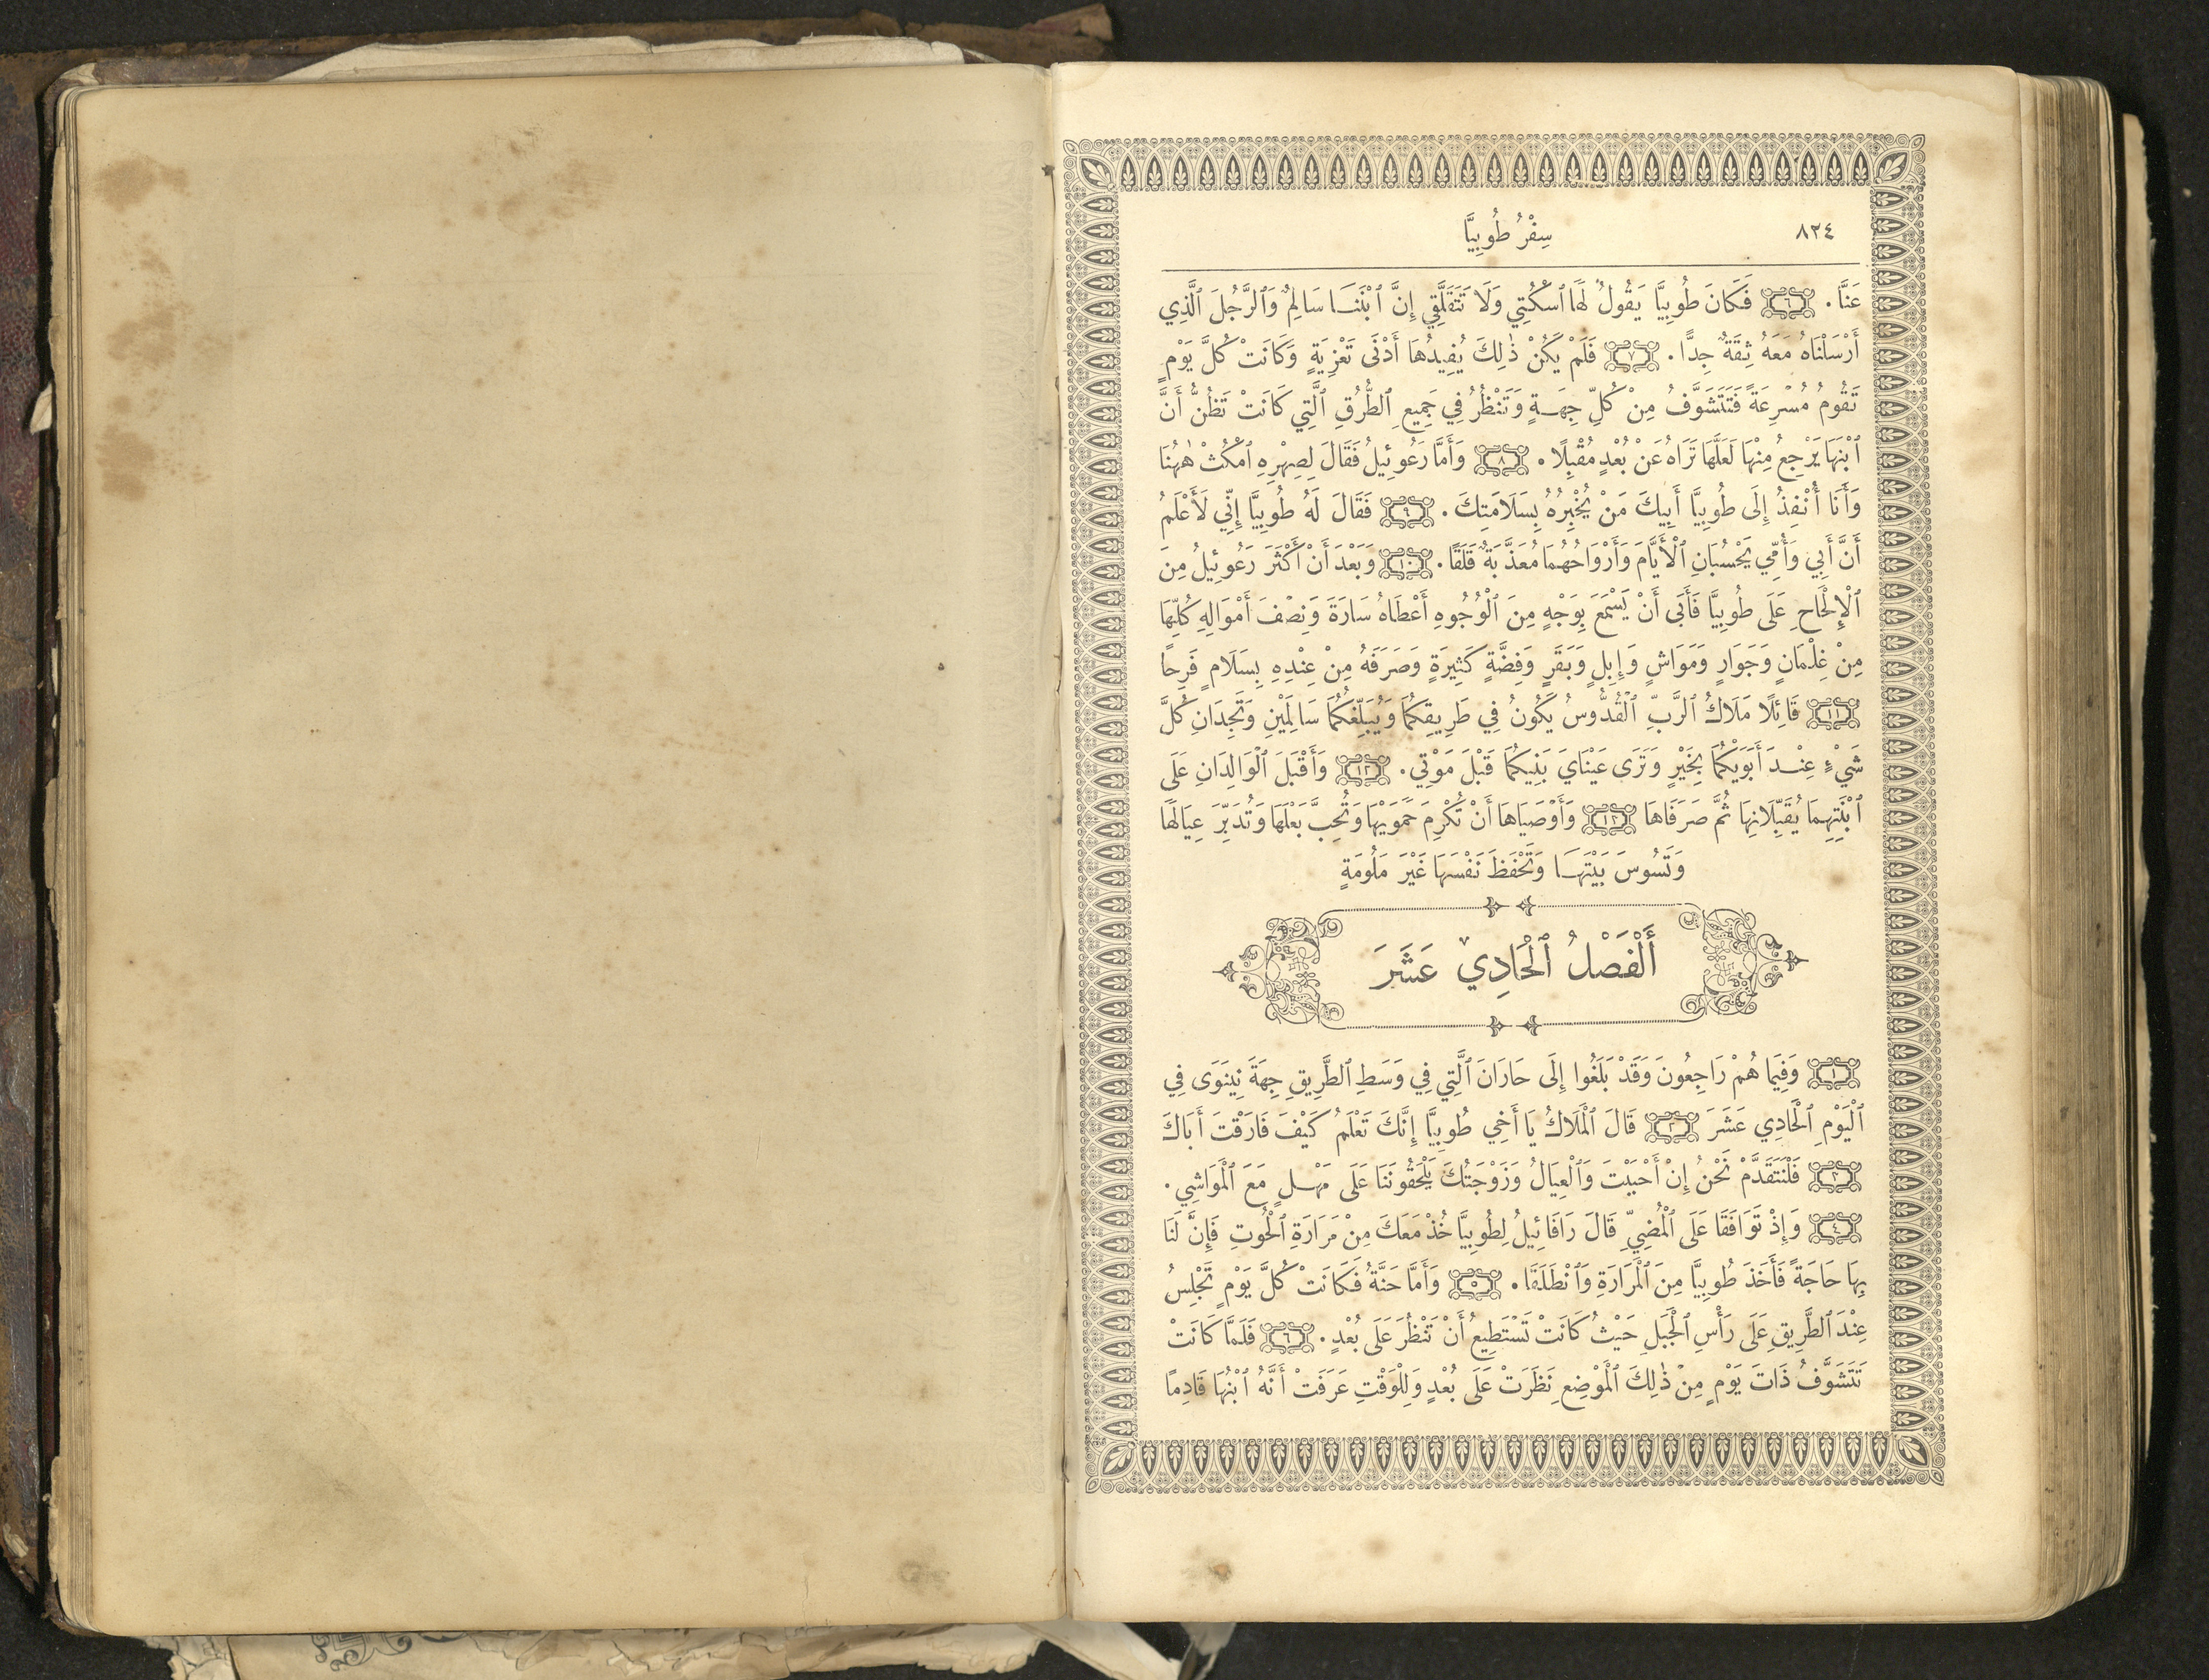 ٨٢٤ سِفْرُ طُوبِيَّا
عَنَّا. ٦ فَكَانَ طُوبِيَّا يَقُولُ لَهَا ٱسْكُتِي وَلَا تَتَقَلَّقِي إِنَّ ٱبْنَنَـا سَالِمٌ وَٱلرَّجُلَ ٱلَّذِي
أَرْسَلْنَاهُ مَعَهُ ثِقَةٌ جِدًّا. ٧ فَلَمْ يَكُنْ ذٰلِكَ يُفِيدُهَا أَدْنَى تَعْزِيَةٍ وَكَانَتْ كُلَّ يَوْمٍ
تَقُومُ مُسْرِعَةً فَتَتَشَوَّفُ مِنْ كُلِّ جِهَـةٍ وَتَنْظُرُ فِي جَمِيعِ ٱلطُّرُقِ ٱلَّتِي كَانَتْ تَظُنُّ أَنَّ
ٱبْنَهَا يَرْجِعُ مِنْهَا لَعَلَّهَا تَرَاهُ عَنْ بُعْدٍ مُقْبِلًا. ٨ وَأَمَّا رَعُوئِيلُ فَقَالَ لِصِهْرِهِ ٱمْكُثْ هٰهُنَا
وَأَنَا أُنْفِذُ إِلَى طُوبِيَّا أَبِيكَ مَنْ يُخْبِرُهُ بِسَلَامَتِكَ. ٩ فَقَالَ لَهُ طُوبِيَّا إِنِّي لَأَعْلَمُ
أَنَّ أَبِي وَأُمِّي يَحْسُبَانِ ٱلْأَيَّامَ وَأَرْوَاحُهُمَا مُعَذَّبَةٌ قَلَقًا. ١٠ وَبَعْدَ أَنْ أَكْثَرَ رَعُوئِيلُ مِنَ
ٱلْإِلْحَاحِ عَلَى طُوبِيَّا فَأَبَى أَنْ يَسْمَعَ بِوَجْهٍ مِنَ ٱلْوُجُوهِ أَعْطَاهُ سَارَةَ وَنِصْفَ أَمْوَالِهِ كُلِّهَا
مِنْ غِلْمَانٍ وَجَوَارٍ وَمَوَاشٍ وَإِبِلٍ وَبَقَرٍ وَفِضَّةٍ كَثِيرَةٍ وَصَرَفَهُ مِنْ عِنْدِهِ بِسَلَامٍ فَرِحًا
١١ قَائِلًا مَلَاكُ ٱلرَّبِّ ٱلْقُدُّوسُ يَكُونُ فِي طَرِيقِكُمَا وَيُبَلِّغُكُمَا سَالِمَيْنِ وَتَجِدَانِ كُلَّ
شَيْءٍ عِنْـدَ أَبَوَيْكُمَا بِخَيْرٍ وَتَرَى عَيْنَايَ بَنِيكُمَا قَبْلَ مَوْتِي. ١٢ وَأَقْبَلَ ٱلْوَالِدَانِ عَلَى
ٱبْنَتِهِمَا يُقَبِّلَانِهَا ثُمَّ صَرَفَاهَا ١٣ وَأَوْصَيَاهَا أَنْ تُكْرِمَ حَمَوَيْهَا وَتُحِبَّ بَعْلَهَا وَتُدَبِّرَ عِيَالَهَا
وَتَسُوسَ بَيْتَهَـا وَتَحْفَظَ نَفْسَهَا غَيْرَ مَلُومَةٍ
أَلْفَصْلُ ٱلْحَادِي عَشَرَ
١ وَفِيمَا هُمْ رَاجِعُونَ وَقَدْ بَلَغُوا إِلَى حَارَانَ ٱلَّتِي فِي وَسَطِ ٱلطَّرِيقِ جِهَةَ نِينَوَى فِي
ٱلْيَوْمِ ٱلْحَادِي عَشَرَ ٢ قَالَ ٱلْمَلَاكُ يَا أَخِي طُوبِيَّا إِنَّكَ تَعْلَمُ كَيْفَ فَارَقْتَ أَبَاكَ
٣ فَلْنَتَقَدَّمْ نَحْنُ إِنْ أَحْبَبْتَ وَٱلْعِيَالُ وَزَوْجَتُكَ يَلْحَقُونَنَا عَلَى مَهْـلٍ مَعَ ٱلْمَوَاشِي.
٤ وَإِذْ تَوَافَقَا عَلَى ٱلْمُضِيِّ قَالَ رَافَائِيلُ لِطُوبِيَّا خُذْ مَعَكَ مِنْ مَرَارَةِ ٱلْحُوتِ فَإِنَّ لَنَا
بِهَا حَاجَةً فَأَخَذَ طُوبِيَّا مِنَ ٱلْمَرَارَةِ وَٱنْطَلَقَا. ٥ وَأَمَّا حَنَّةُ فَكَانَتْ كُلَّ يَوْمٍ تَجْلِسُ
عِنْدَ ٱلطَّرِيقِ عَلَى رَأْسِ ٱلْجَبَلِ حَيْثُ كَانَتْ تَسْتَطِيعُ أَنْ تَنْظُرَ عَلَى بُعْدٍ. ٦ فَلَمَّا كَانَتْ
تَتَشَوَّفُ ذَاتَ يَوْمٍ مِنْ ذٰلِكَ ٱلْمَوْضِعِ نَظَرَتْ عَلَى بُعْدٍ وَلِلْوَقْتِ عَرَفَتْ أَنَّهُ ٱبْنُهَا قَادِمًا